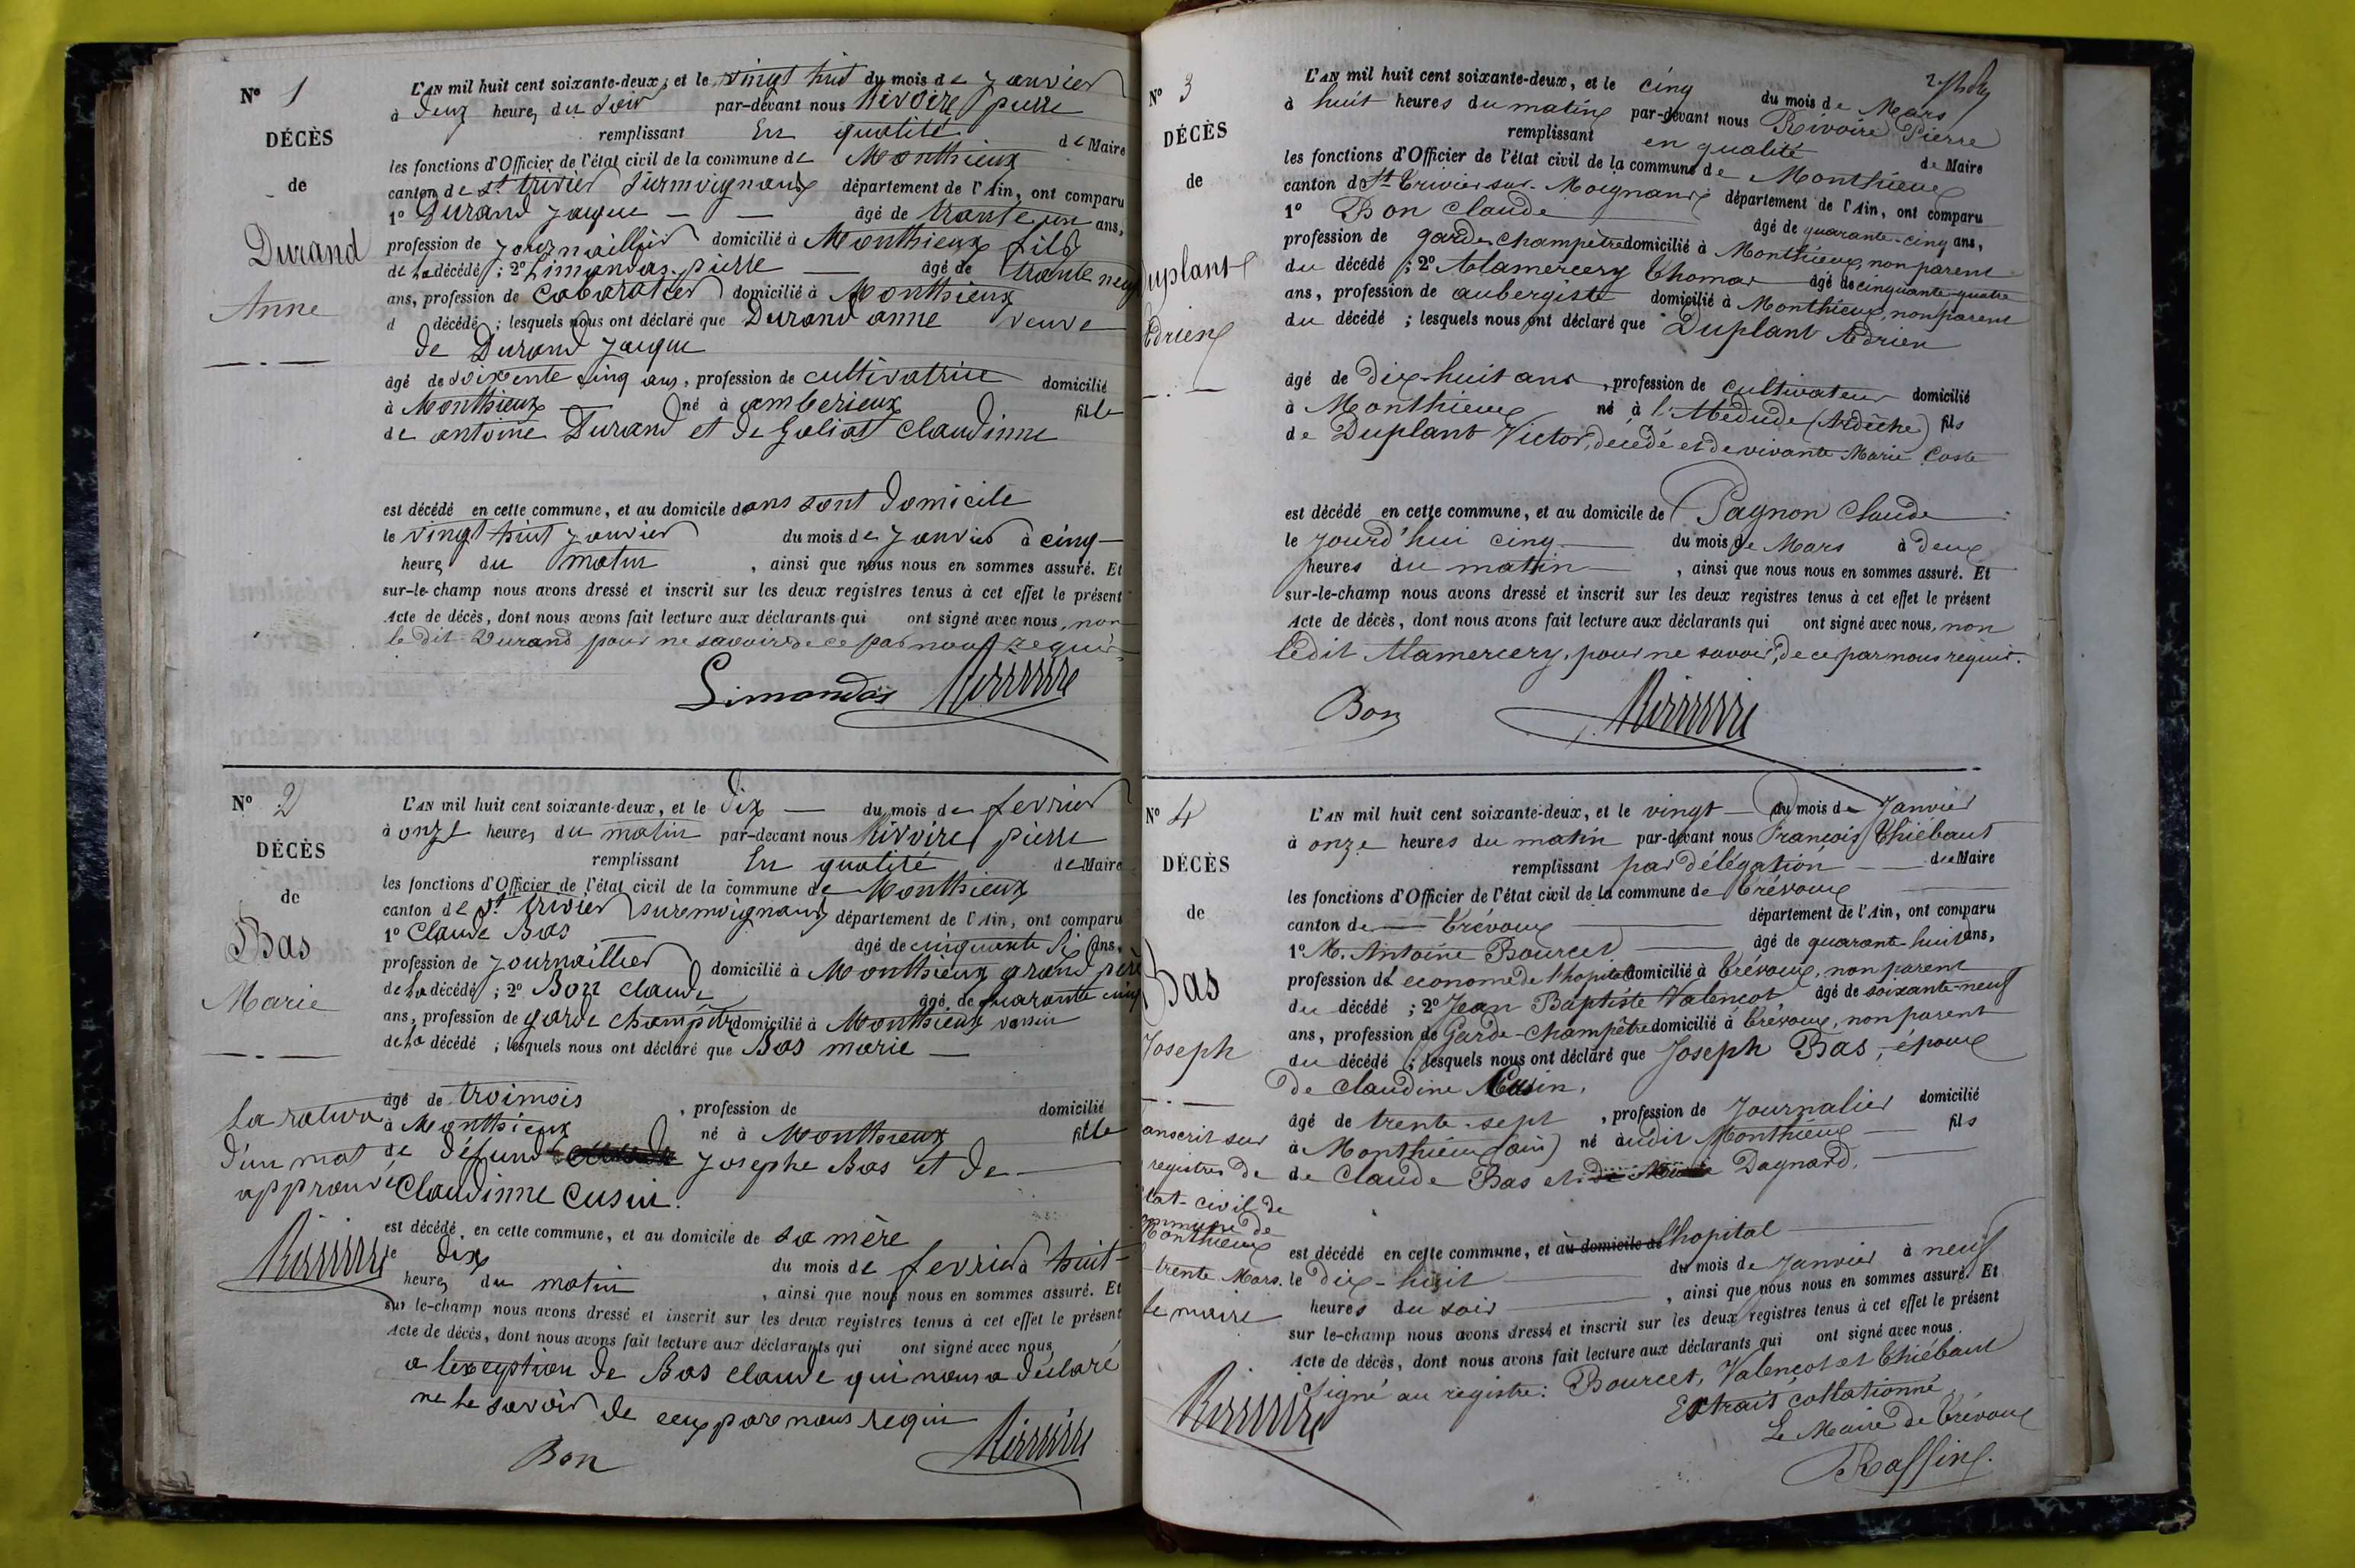 N° 1
DÉCÈS
de
Durand
Anne
L'AN mil huit cent soixante-deux, et le vingt huit du mois de janvier
à deux heures du soir par-devant nous Rivoire pierre
remplissant En qualité de Maire
les fonctions d'Officier de l'état civil de la commune de Monthieux
canton de St trivier surmoignans département de l'Ain, ont comparu
1° Durand jaque — — âgé de trante un ans,
profession de journaillier domicilié à Monthieux fils
de la décédé ; 2° Limandas pierre — âgé de trante neuf
ans, profession de cabaratier domicilié à Monthieux
d décédé ; lesquels nous ont déclaré que Durand anne veuve
de Durand jaque
âgé de soixente cinq ans, profession de cultivatrice domicilié
à Monthieux — né à amberieux fille
de antoine Durand et de Galiat Claudinne
est décédé en cette commune, et au domicile dans sont domicile
le vingt huit janvier du mois de janvier à cinq —
heures du matin , ainsi que nous nous en sommes assuré. Et
sur-le-champ nous avons dressé et inscrit sur les deux registres tenus à cet effet le présent
Acte de décès, dont nous avons fait lecture aux déclarants qui ont signé avec nous, non
le dit Durand pour ne savoir de ce par nous requis
Limandas Rivoire
N° 2
DÉCÈS
de
Bas
Marie
L'AN mil huit cent soixante-deux, et le dix — du mois de fevrier
à onze heures du matin par-devant nous Rivoire pierre
remplissant En qualité de Maire
les fonctions d'Officier de l'état civil de la commune de Monthieux
canton de St trivier suremoignans département de l'Ain, ont comparu
1° Claude Bas âgé de cinquante si ans,
profession de journaillier domicilié à Monthieux grand père
de la décédé ; 2° Bon claude âgé de quarante cinq
ans, profession de garde champêtre domicilié à Monthieux voisin
de la décédé ; lesquels nous ont déclaré que Bas marie —
âgé de troimois , profession de domicilié
à Monthieux né à Monthieux fille
de défund josephe Bas et de —
Claudinne Cusin.
la rature
d'un mot
approuvé
Rivoire
est décédé en cette commune, et au domicile de sa mère
le dix du mois de fevrier à huit
heures du matin , ainsi que nous nous en sommes assuré. Et
sur le-champ nous avons dressé et inscrit sur les deux registres tenus à cet effet le présent
Acte de décès, dont nous avons fait lecture aux déclarants qui ont signé avec nous
a lexeption de Bas claude qui nous a déclaré
ne le savoir de ceux pare nous requis
Bon Rivoire
N° 3
DÉCÈS
de
Duplant
Adrien
L'AN mil huit cent soixante-deux, et le cinq du mois de Mars
à huit heures du matin par-devant nous Rivoire Pierre
remplissant en qualité de Maire
les fonctions d'Officier de l'état civil de la commune de Monthieux
canton de St Trivier sur-Moignans département de l'Ain, ont comparu
1° Bon Claude âgé de quarante-cinq ans,
profession de garde-champêtre domicilié à Monthieux, non parent
du décédé ; 2° Mamercery Thomas âgé de cinquante-quatre
ans, profession de aubergiste domicilié à Monthieux, non parent
du décédé ; lesquels nous ont déclaré que Duplant Adrien
âgé de dix-huit ans , profession de cultivateur domicilié
à Monthieux né à (Ardèche) fils
de Duplant Victor, décédé et de vivante Marie Coste
est décédé en cette commune, et au domicile de Pagnon Claude
le jourd'hui cinq — du mois de Mars à deux
heures du matin — , ainsi que nous nous en sommes assuré. Et
sur-le-champ nous avons dressé et inscrit sur les deux registres tenus à cet effet le présent
Acte de décès, dont nous avons fait lecture aux déclarants qui ont signé avec nous, non
ledit Mamercery, pour ne savoir, de ce par nous requis.
Bon Rivoire
N° 4
DÉCÈS
de
Bas
Joseph
L'AN mil huit cent soixante-deux, et le vingt — du mois de Janvier
à onze heures du matin par-devant nous François Thiébaut
remplissant par délégation — du Maire
les fonctions d'Officier de l'état civil de la commune de Trévoux
canton de — Trévoux — département de l'Ain, ont comparu
1° M. Antoine Bourcet — âgé de quarante-huit ans,
profession d'econome de l'hopital domicilié à Trévoux, non parent
du décédé ; 2° Jean Baptiste Valençot, âgé de soixante-neuf
ans, profession de Garde-champêtre domicilié à Trévoux, non parent
du décédé ; lesquels nous ont déclaré que Joseph Bas, époux
de Claudine Cusin,
âgé de trente-sept , profession de Journalier domicilié
à Monthieux (ain) né audit Monthieux — fils
de Claude Bas et Dagnard. —
anscrit sur
registres de
état-civil de
commune de
Monthieux
trente Mars.
le maire
Rivoire
est décédé en cette commune, et au domicile de l'hopital —
le dix-huit — du mois de Janvier à neuf
heures du soir — , ainsi que nous nous en sommes assuré. Et
sur le-champ nous avons dressé et inscrit sur les deux registres tenus à cet effet le présent
Acte de décès, dont nous avons fait lecture aux déclarants qui ont signé avec nous.
Signé au registre: Bourcet, Valençot et Thiébaut
Extrait collationné
Le Maire de Trévoux
Raffin